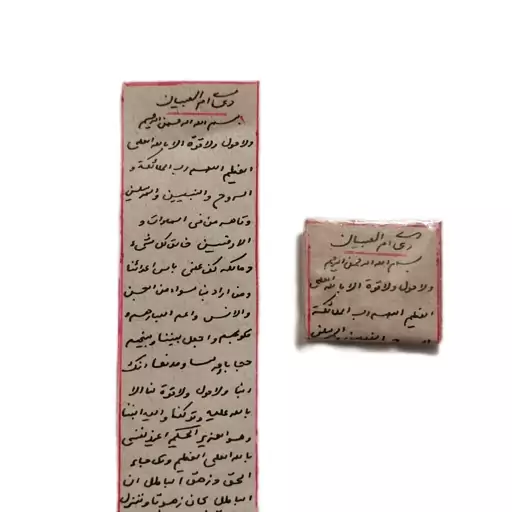 دعای ام الصبیان
بسم الله الرحمن الرحیم
ولا حول ولا قوة الا بالله العلی
العظیم اللهم رب الملائکة و
الروح والنبیین والمرسلین
و قاهر من فی السموات و
الارضین خالق کل شیء
و مالکه کف عنی باس اعدائنا
ومن اراد بنا سوء من الجن
والانس واعم ابصارهم و
قلوبهم واجعل بیننا وبینهم
حجابا و حرسا ومدفعا انک
ربنا ولا حول ولا قوة لنا الا
بالله علیه توکلنا والیه انبنا
وهو العزیز الحکیم اعیذ نفسی
بالله العلی العظیم وقل جاء
الحق و زهق الباطل ان
الباطل کان زهوقا وننزل
دعای ام الصبیان
بسم الله الرحمن الرحیم
ولا حول ولا قوة الا بالله العلی
العظیم اللهم رب الملائکة